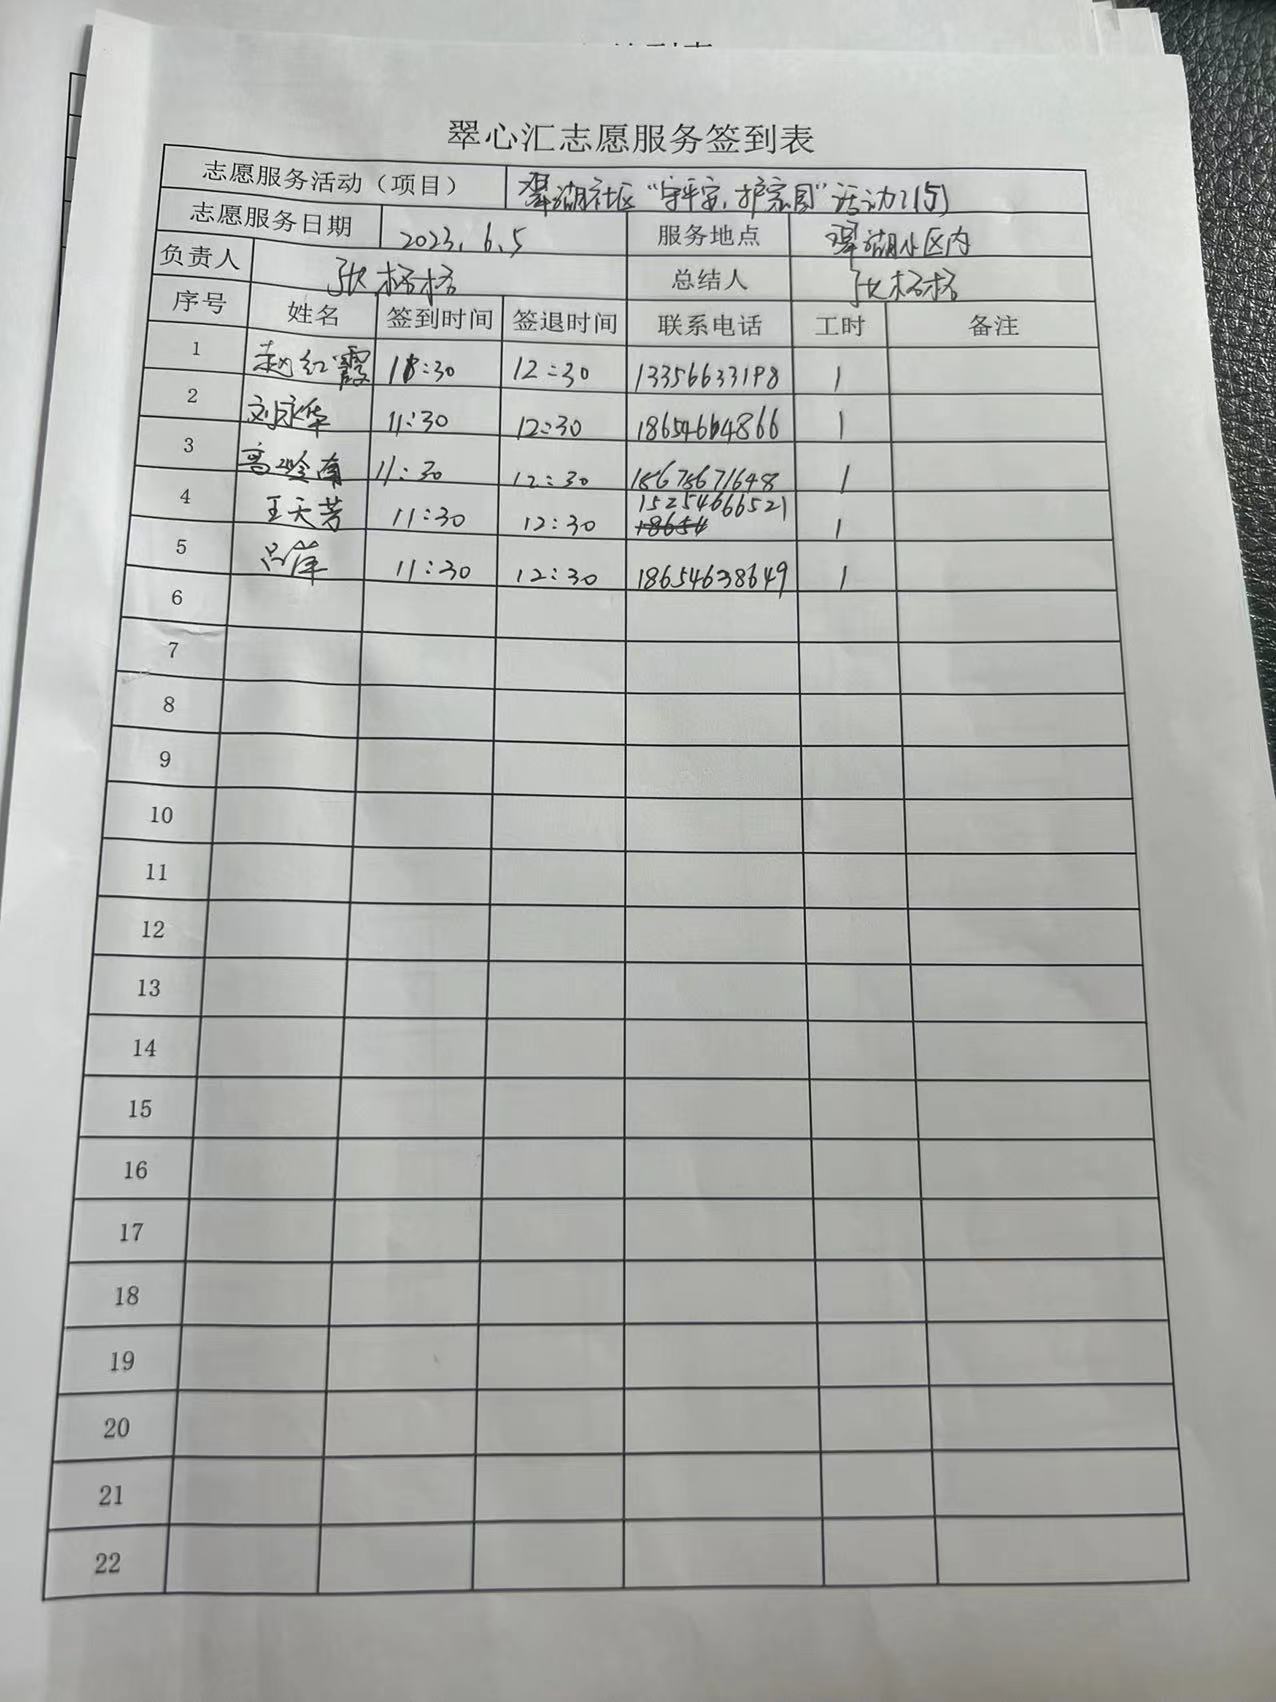 翠心汇志愿服务签到表
志愿服务活动（项目） 翠湖社区“守平安，护家园”活动(15)
志愿服务日期 2023.6.5 服务地点 翠湖小区内
负责人 张杨杨 总结人 张杨杨
序号 姓名 签到时间 签退时间 联系电话 工时 备注
1 赵红霞 11:30 12:30 13356633198 1
2 刘永华 11:30 12:30 18654664866 1
3 高 11:30 12:30 15675671648 1
4 王天芳 11:30 12:30 15254666521 1
5 吕萍 11:30 12:30 18654638649 1
6
7
8
9
10
11
12
13
14
15
16
17
18
19
20
21
22